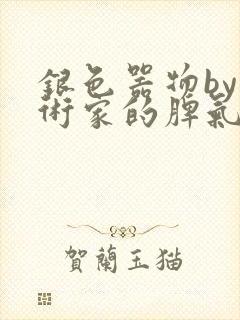 銀色器物by
術家的脾氣
賀蘭玉猫